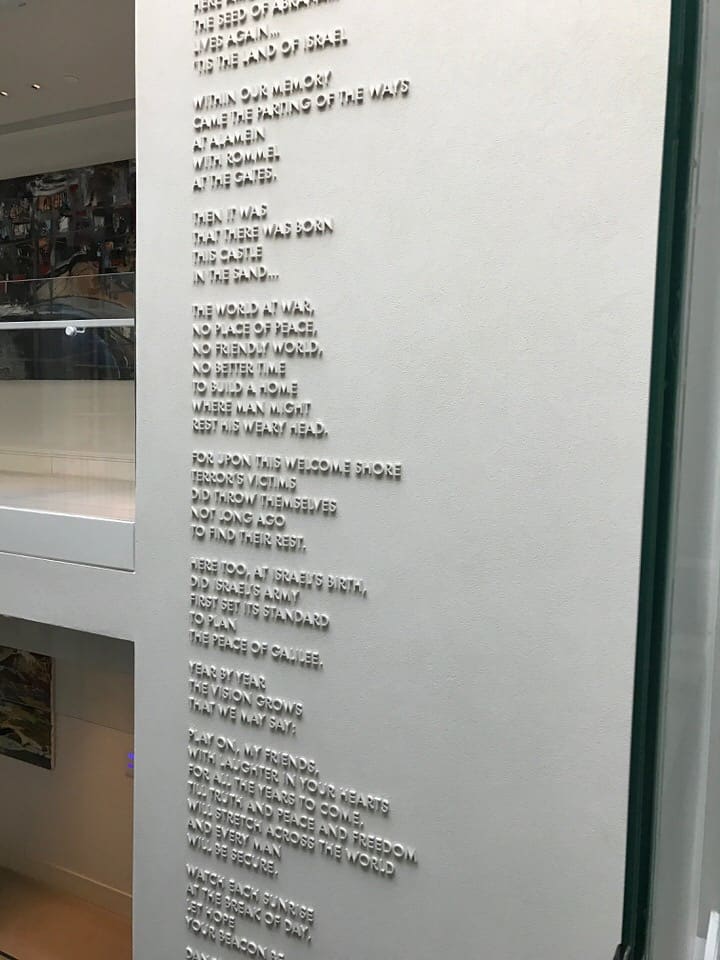 THE SEED OF ABRAHAM
LIVES AGAIN...
'TIS THE LAND OF ISRAEL
WITHIN OUR MEMORY
CAME THE PARTING OF THE WAYS
AT ALAMEIN
WITH ROMMEL
AT THE GATES.
THEN IT WAS
THAT THERE WAS BORN
THIS CASTLE
IN THE SAND...
THE WORLD AT WAR,
NO PLACE OF PEACE,
NO FRIENDLY WORLD,
NO BETTER TIME
TO BUILD A HOME
WHERE MAN MIGHT
REST HIS WEARY HEAD.
FOR UPON THIS WELCOME SHORE
TERROR'S VICTIMS
DID THROW THEMSELVES
NOT LONG AGO
TO FIND THEIR REST.
HERE TOO, AT ISRAEL'S BIRTH,
DID ISRAEL'S ARMY
FIRST SET ITS STANDARD
TO PLAN
THE PEACE OF GALILEE.
YEAR BY YEAR
THE VISION GROWS
THAT WE MAY SAY:
PLAY ON, MY FRIENDS,
WITH LAUGHTER IN YOUR HEARTS
FOR ALL THE YEARS TO COME,
TILL TRUTH AND PEACE AND FREEDOM
WILL STRETCH ACROSS THE WORLD
AND EVERY MAN
WILL BE SECURE.
WATCH EACH SUNRISE
AT THE BREAK OF DAY,
LET HOPE
YOUR BEACON BE